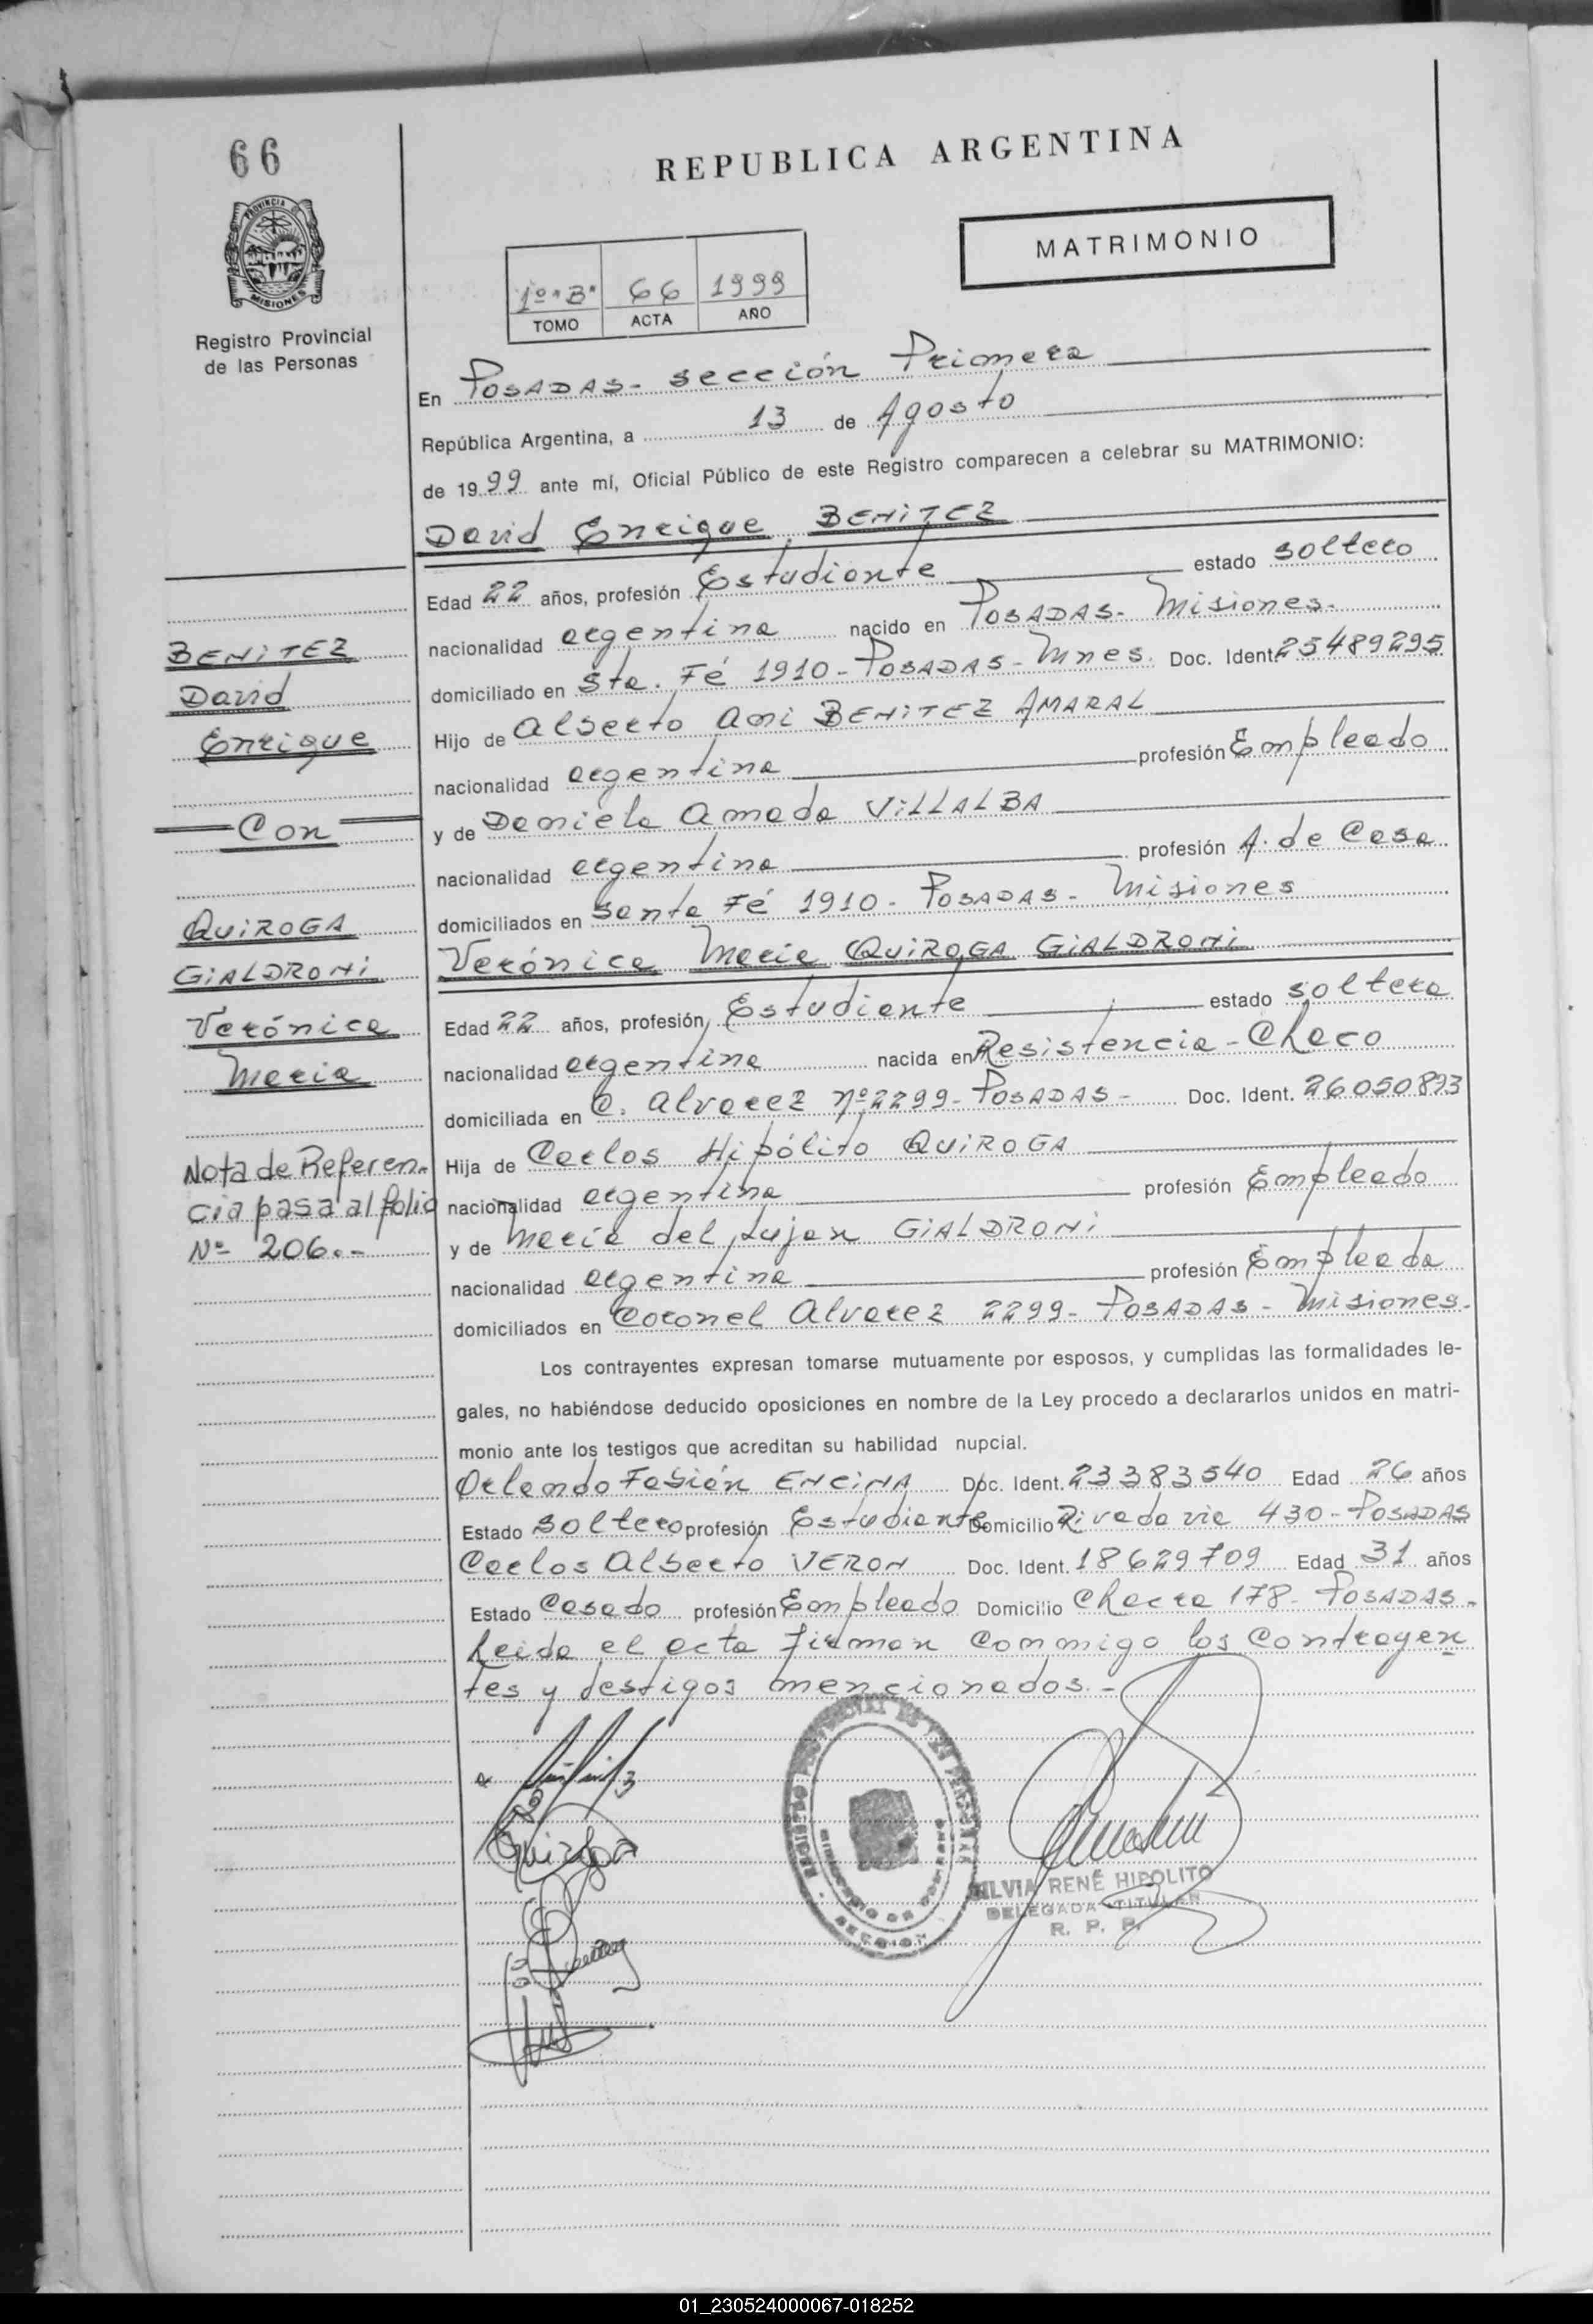 66
REPUBLICA ARGENTINA
MATRIMONIO
PROVINCIA
MISIONES
Registro Provincial
de las Personas
1º "B" 66 1999
TOMO ACTA AÑO
En POSADAS - sección Primera
República Argentina, a 13 de Agosto
de 1999 ante mí, Oficial Público de este Registro comparecen a celebrar su MATRIMONIO:
David Enrique BENITEZ
Edad 22 años, profesión Estudiante estado soltero
nacionalidad argentina nacido en POSADAS - Misiones.
domiciliado en Sta. Fé 1910 - POSADAS - Mnes. Doc. Ident. 25489295
Hijo de Alberto Ani BENITEZ AMARAL
nacionalidad argentina profesión Empleado
y de Daniela Amada VILLALBA
nacionalidad argentina profesión A. de Casa
domiciliados en Santa Fé 1910 - POSADAS - Misiones
Verónica Maria QUIROGA GIALDRONI
Edad 22 años, profesión Estudiante estado soltera
nacionalidad argentina nacida en Resistencia - Chaco
domiciliada en C. Alvarez Nº 2299 - POSADAS - Doc. Ident. 26050893
Hija de Carlos Hipólito QUIROGA
nacionalidad argentina profesión Empleado
y de María del Lujan GIALDRONI
nacionalidad argentina profesión Empleada
domiciliados en Coronel Alvarez 2299 - POSADAS - Misiones.
Los contrayentes expresan tomarse mutuamente por esposos, y cumplidas las formalidades le-
gales, no habiéndose deducido oposiciones en nombre de la Ley procedo a declararlos unidos en matri-
monio ante los testigos que acreditan su habilidad nupcial.
Orlando Fabián ENCINA Doc. Ident. 23383540 Edad 26 años
Estado soltero profesión Estudiante Domicilio Rivadavia 430 - POSADAS
Carlos Alberto VERON Doc. Ident. 18629709 Edad 31 años
Estado Casado profesión Empleado Domicilio Chacra 178 - POSADAS -
Leida el acta firman conmigo los contrayen
tes y testigos mencionados. -
BENITEZ
David
Enrique
Con
QUIROGA
GIALDRONI
Verónica
Maria
Nota de Referen-
cia pasa al folio
Nº 206.-
Quiroga
SILVIA RENÉ HIPOLITO
DELEGADA TITULAR
R. P. P.
01_230524000067-018252